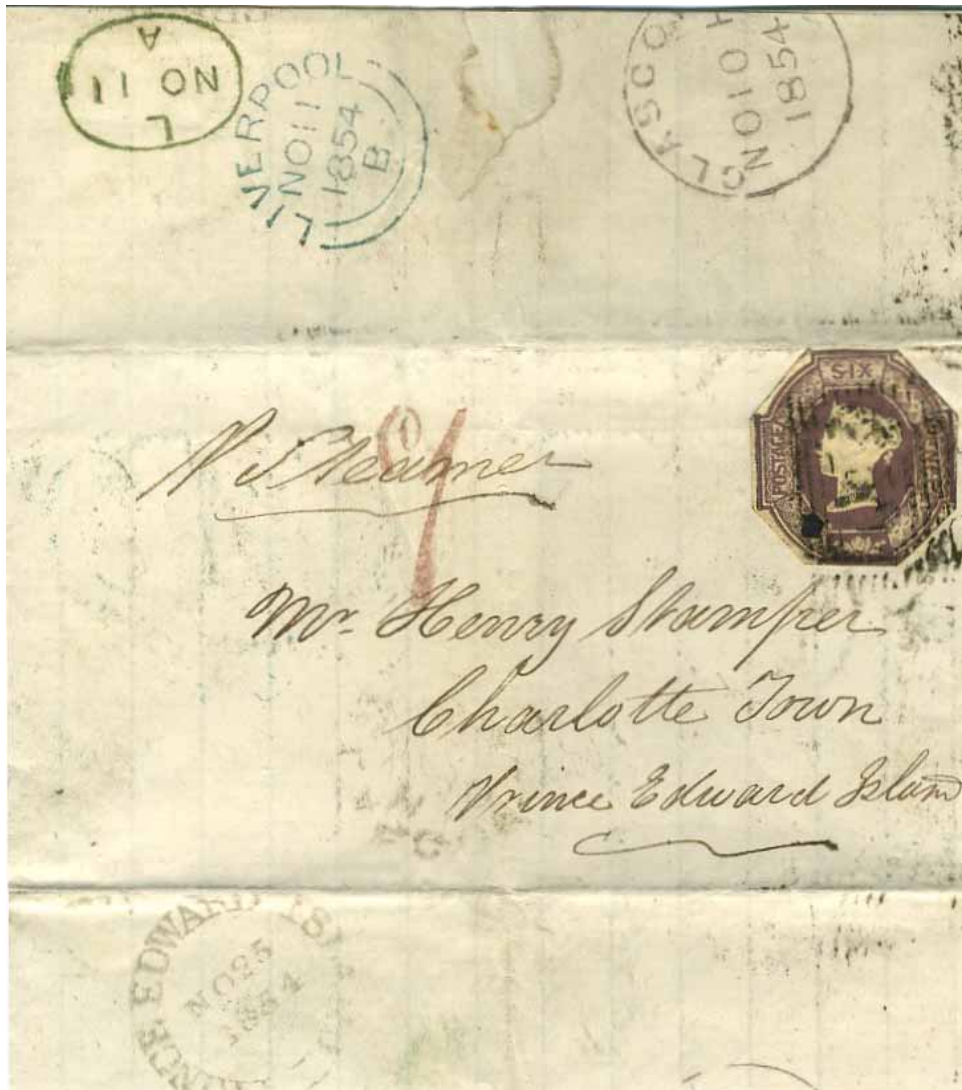 A
NO 11
L
LIVERPOOL
NO 11
1854
B
GLASGO
NO 10 H
1854
SIX
POSTAGE
PENCE
P Steamer
1
Mr. Henry Stamper
Charlotte Town
Prince Edward Island
PRINCE EDWARD ISL
NO 25
1854